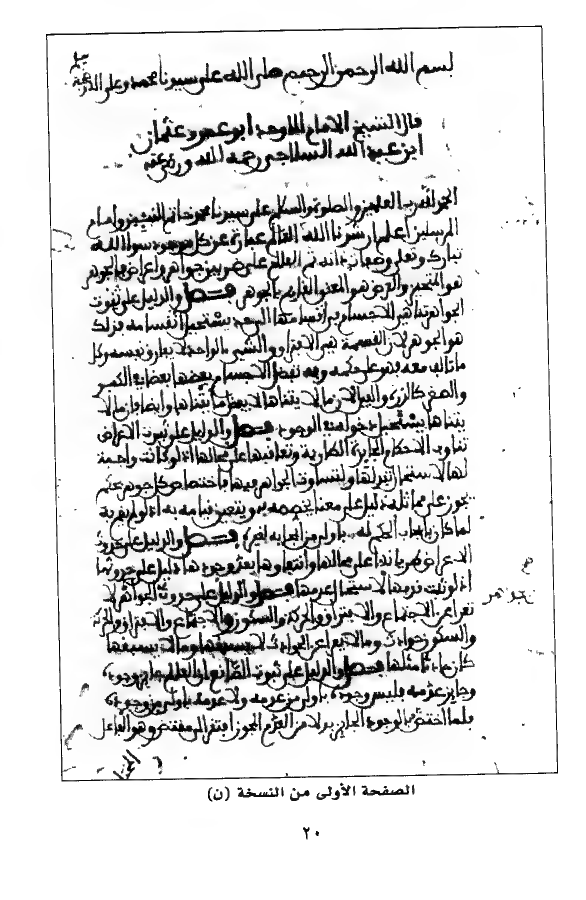 بسم الله الرحمن الرحيم صلى الله على سيدنا محمد وعلى اله
قال الشيخ الامام الاوحد ابو عمرو عثمان
ابن عبد الله السلالجي رحمه الله ورضي عنه
الحمد لله رب العلمين والصلوة والسلام على سيدنا محمد خاتم النبيين وامام
المرسلين اعلم ارشدنا الله ان العالم عبارة عن كل موجود سوا الله
تبارك وتعلى وصفات ذاته ثم العالم على ضربين جواهر واعراض فالجوهر
هو المتحيز والعرض هو المعنى القائم بالجوهر فصل والدليل على ثبوت
الجواهر تناهي الاجسام في انقسامها الى حد يستحيل انقسامه فذلك
هو الجوهر لان القسمة هي الافتراق والشيء الواحد لا يفارق نفسه وكل
والصغر كالذرة والفيل لان ما لا يتناها لا يفضل ما يتناها وايضا فان ما لا
يتناها يستحيل دخوله في الوجود فصل والدليل على ثبوت الاعراض
تناوب الاحكام الجايزة الطارية وتعاقبها على محالها اذ لو كانت واجبة
لها لاستحال تبدلها ولتساوت الجواهر فيها فاختصاص كل جوهر بحكم
يجوز على مماثله دليل على معنى يخصصه به ويتعين قيامه به اذ لو لم يقم به
لما كان بايجاب الحكم له باولى من ايجابه لغيره فصل والدليل على حدوث
الاعراض طريانها على محالها وانتفاؤها بعد وجودها دليل على حدوثها
اذ لو ثبت قدمها لاستحال عدمها فصل والدليل على حدوث الجواهر انها لا
جواهر
تعرى عن الاجتماع والافتراق والحركة والسكون والاجتماع والافتراق والحركة
والسكون حوادث وما لا يعرى عن الحوادث لا يسبقها وما لا يسبقها
كان حادثا مثلها فصل والدليل على ثبوت الصانع ان العالم جايز وجوده
وجايز عدمه فليس وجوده باولى من عدمه ولا عدمه باولى من وجوده
فلما اختص بالوجود الجايز بدلا من العدم المجوز افتقر الى مقتض وهو الفاعل
الصفحة الأولى من النسخة (ن)
٢٠